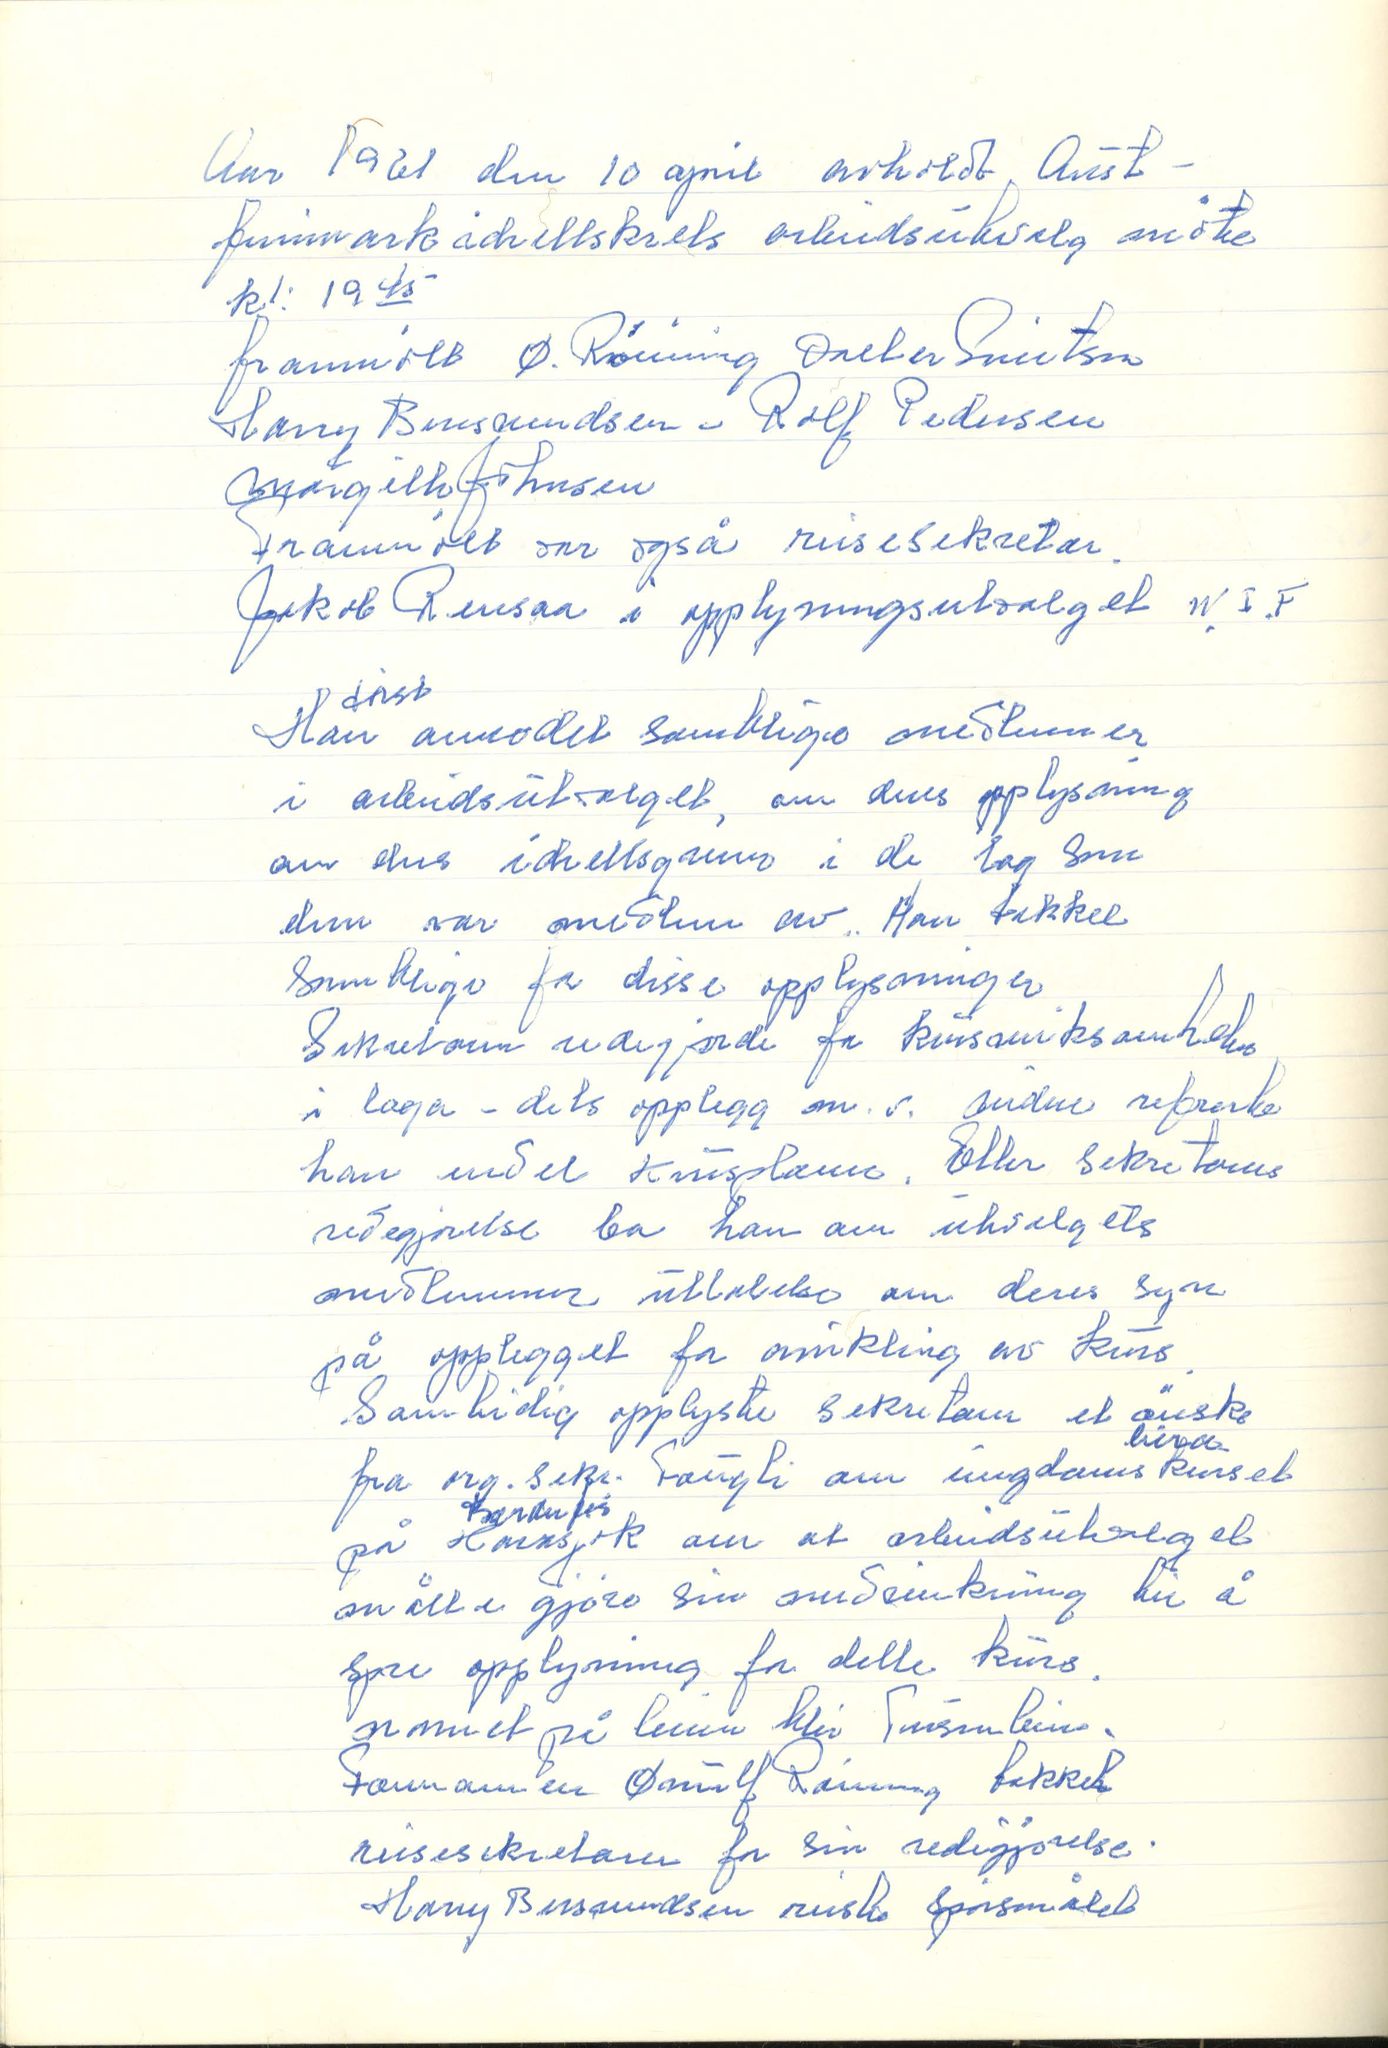 Aar 1961 den 10 april avholdt Aust-
finnmark idrettskrets arbeidsutvalg möte
kl: 19 45
frammött Ø. Röning Valter Smitsen
Harry Bersvendsen - Rolf Pedersen
Margith Johnsen
Frammött var også reisesekretær.
Jakob Rensaa i opplysningsutvalget N.I.F
först
Han anmodet samtlige medlemmer
i arbeidsutvalget, om deres opplysning
om deres idrettsgrener i de lag som
dem var medlem av. Han takket
samtlige for disse opplysninger
Sekretæren redegjorde for kursvirksomheten
i laga - dets opplegg m.v. videre refererte
han endel kursplaner. Etter sekretærens
redegjørelse ba han om utvalgets
medlemmer uttalelse om deres syn
på opplegget for avvikling av kurs.
Samtidig opplyste sekretæren et önske
fra org. sekr. Fougli om ungdomskurset
på Karasjok om at arbeidsutvalget
måtte gjöre sin medvirkning til å
spre opplysning for dette kurs.
navnet på leiren blir
Formannen Ørnulf Röning takket
reisesekretæren for sin redegjörelse.
Harry Bersvendsen reiste spörsmålet